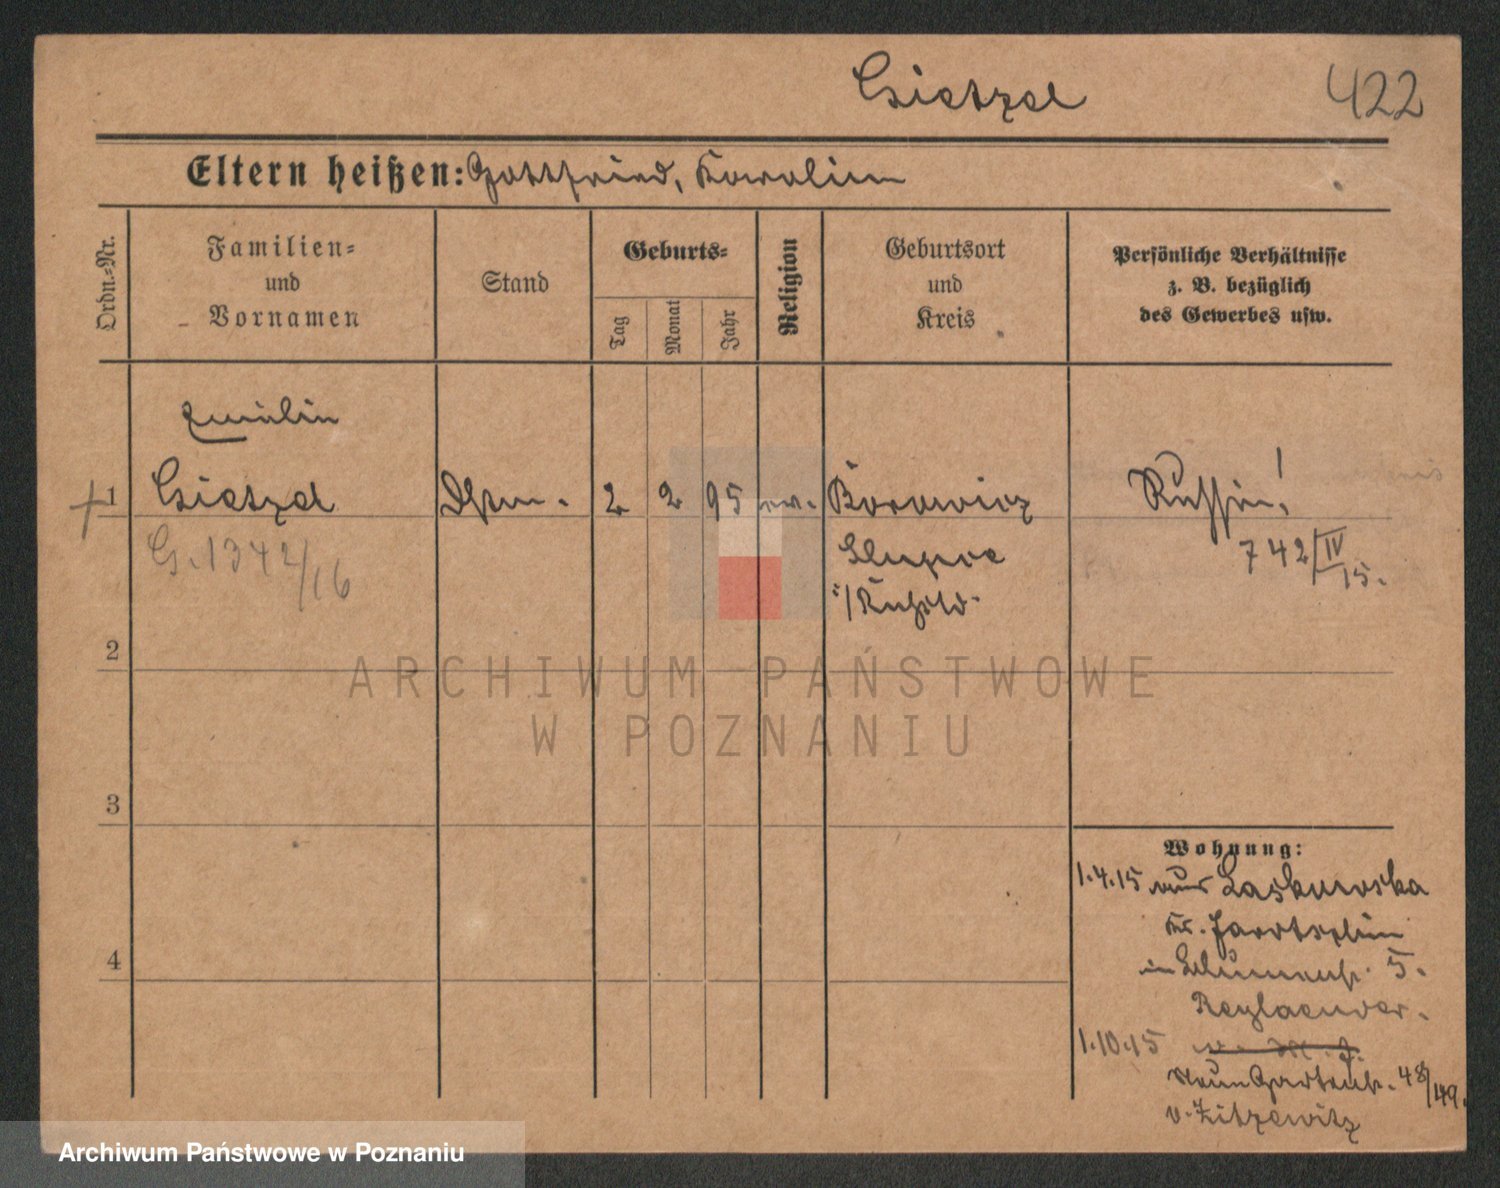 Gietzel 422
Eltern heißen: Gottfried, Karoline
Ordn.-Nr.
Familien-
und
Vornamen
Stand
Geburts-
Tag
Monat
Jahr
Religion
Geburtsort
und
Kreis
Persönliche Verhältnisse
z. B. bezüglich
des Gewerbes usw.
Emilie
1 Gietzel 2 2 95 ev. Borowicz Russin!
G. 1342/16 742/IV 15.
Slupca
i/Rußld.
2
ARCHIWUM PAŃSTWOWE
W POZNANIU
3
Wohnung:
1.4.15 aus
Kr. Jarotschin
in Blumenstr. 5.
1.10.15
Neue Gartenstr. 48/49.
v. Zitzewitz
4
Archiwum Państwowe w Poznaniu